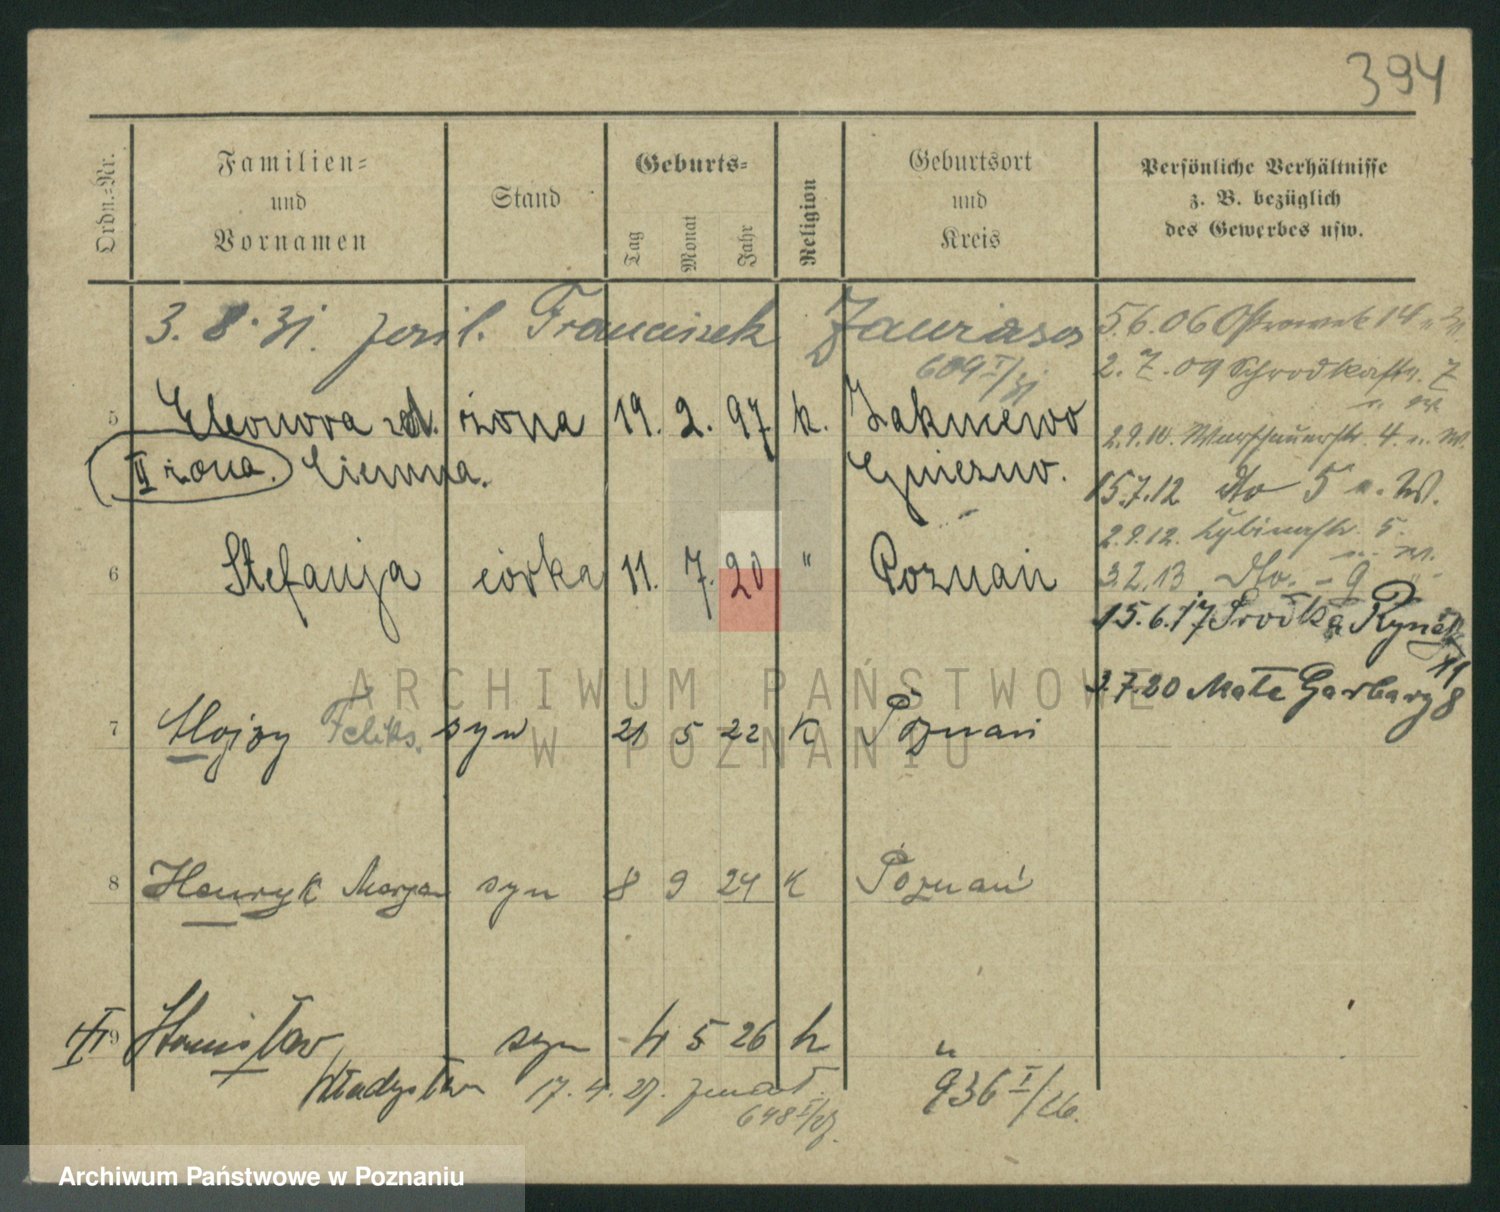 394
Ordn.-Nr.
Familien-
und
Vornamen
Stand
Geburts-
Tag
Monat
Jahr
Religion
Geburtsort
und
Kreis
Persönliche Verhältnisse
z. B. bezüglich
des Gewerbes usw.
3. 8. 31. Franciszek
609 I/31
5.6.06 14
2.7.09 Schrodkastr. 7
5 Eleonora żona 19. 2. 97 k. Żakowo
2.9.10. Warschauerstr. 4.
II żona. Ciemna. Gniezno.
15.7.12 dto 5 W.
2.9.12. Cybinastr. 5.
6 Stefanja córka 11. 7. 20 " Poznań
3.2.13 dto. - 9
15.6.17 Środka Rynek
11
2.7.20 Małe Garbary 8
7 Alojzy Feliks. syn 21 5 22 K Poznań
8 Henryk Marjan syn 8 9 24 K Poznań
9 Stanisław syn 4 5 26 k "
Władysław 17. 4. 27. zmarł.
936 I/26.
648 I/27.
ARCHIWUM PAŃSTWOWE
W POZNANIU
Archiwum Państwowe w Poznaniu